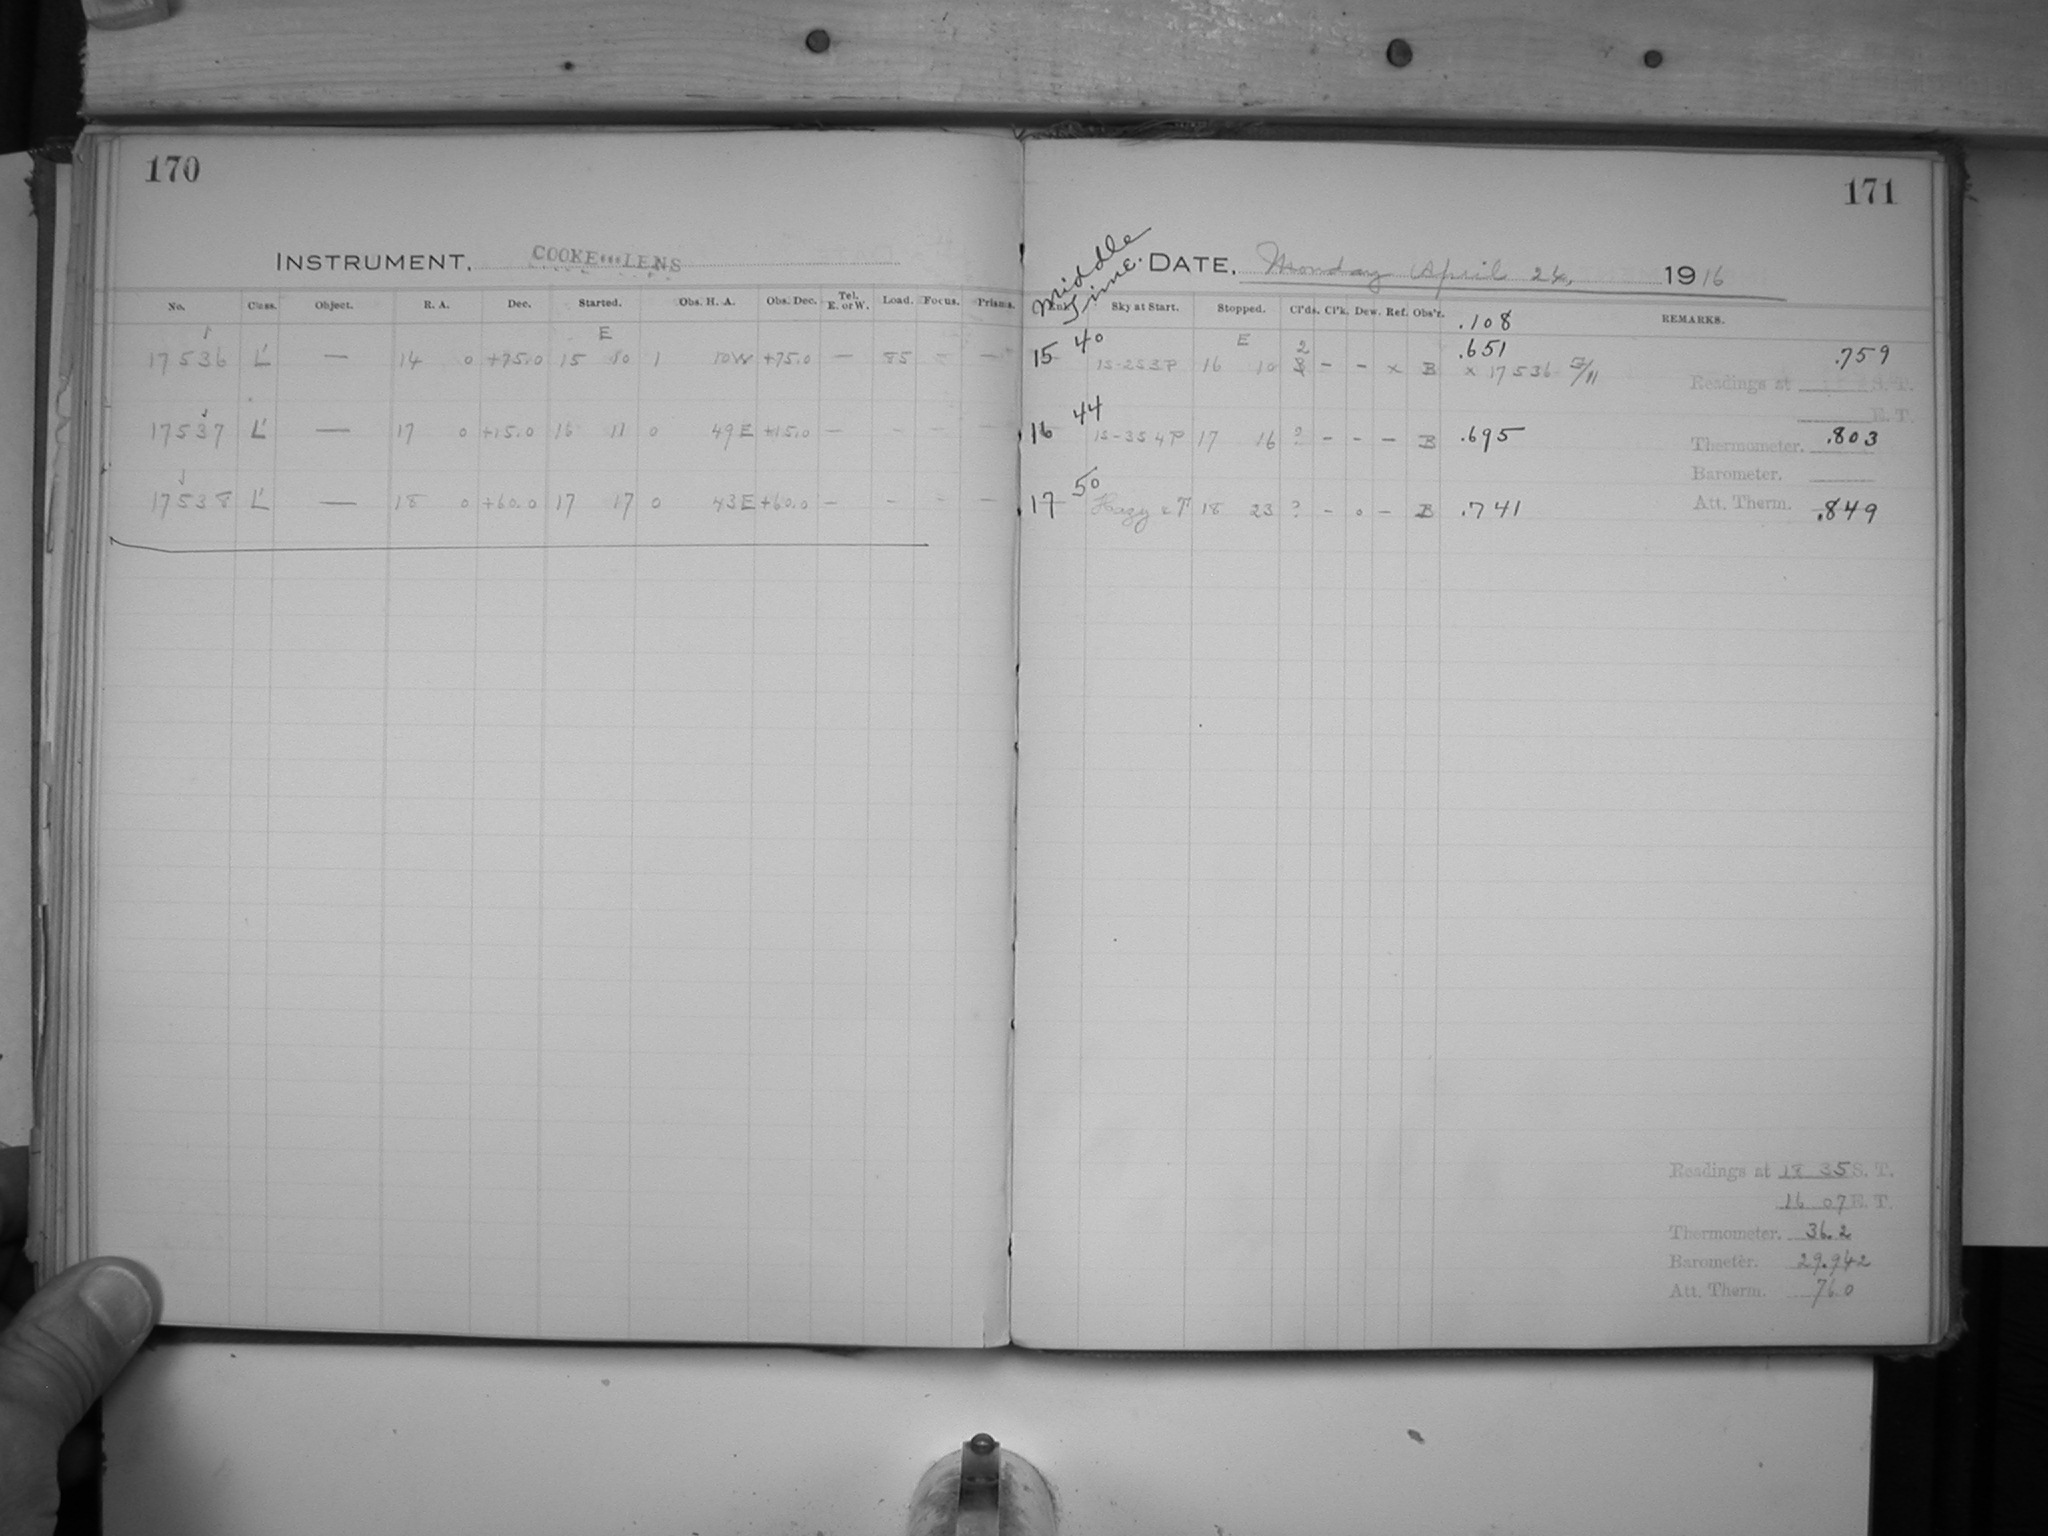 170
INSTRUMENT. COOKE LENS
No. Class. Object. R. A. Dec. Started. Obs. H. A. Obs. Dec. Tel. E. or W. Load. Focus. Prisms.
E
17536 L' — 14 0 +75.0 15 10 1 10W +75.0 — 85 – —
17537 L' — 17 0 +15.0 16 11 0 49E +15.0 — – – –
17538 L' — 18 0 +60.0 17 17 0 43E +60.0 – – – –
171
Middle Time. DATE. Monday April 24, 1916
Sky at Start. Stopped. Cl'ds. Cl'k. Dew. Ref. Obs'r. REMARKS.
.108
15 40 1S-2S3P 16 E 10 2 – – x B .651 .759
x 17536
Readings at S. T.
E. T.
16 44 1S-3S4P 17 16 ? – – – B .695 .803
Thermometer.
Barometer.
17 50 Hazy 18 23 ? – 0 – B .741 .849
Att. Therm.
Readings at 18 35 S. T.
16 07 E. T.
Thermometer. 36.2
Barometer. 29.942
Att. Therm. 76.0